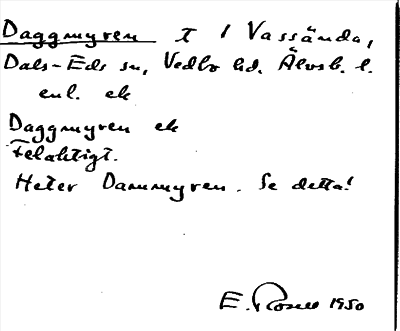 Daggmyren t 1 Vassända,
Dals-Eds sn, Vedbo hd. Älvsb. l.
enl. ek
Daggmyren ek
Felaktigt.
Heter Dammyren. Se detta!
E. Rosell 1950